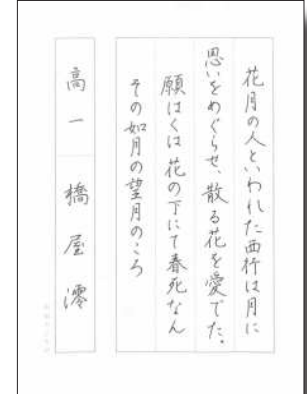 花月の人といわれた西行は月に
思いをめぐらせ、散る花を愛でた。
願はくは花の下にて春死なん
その如月の望月のころ
高一 橋屋澪